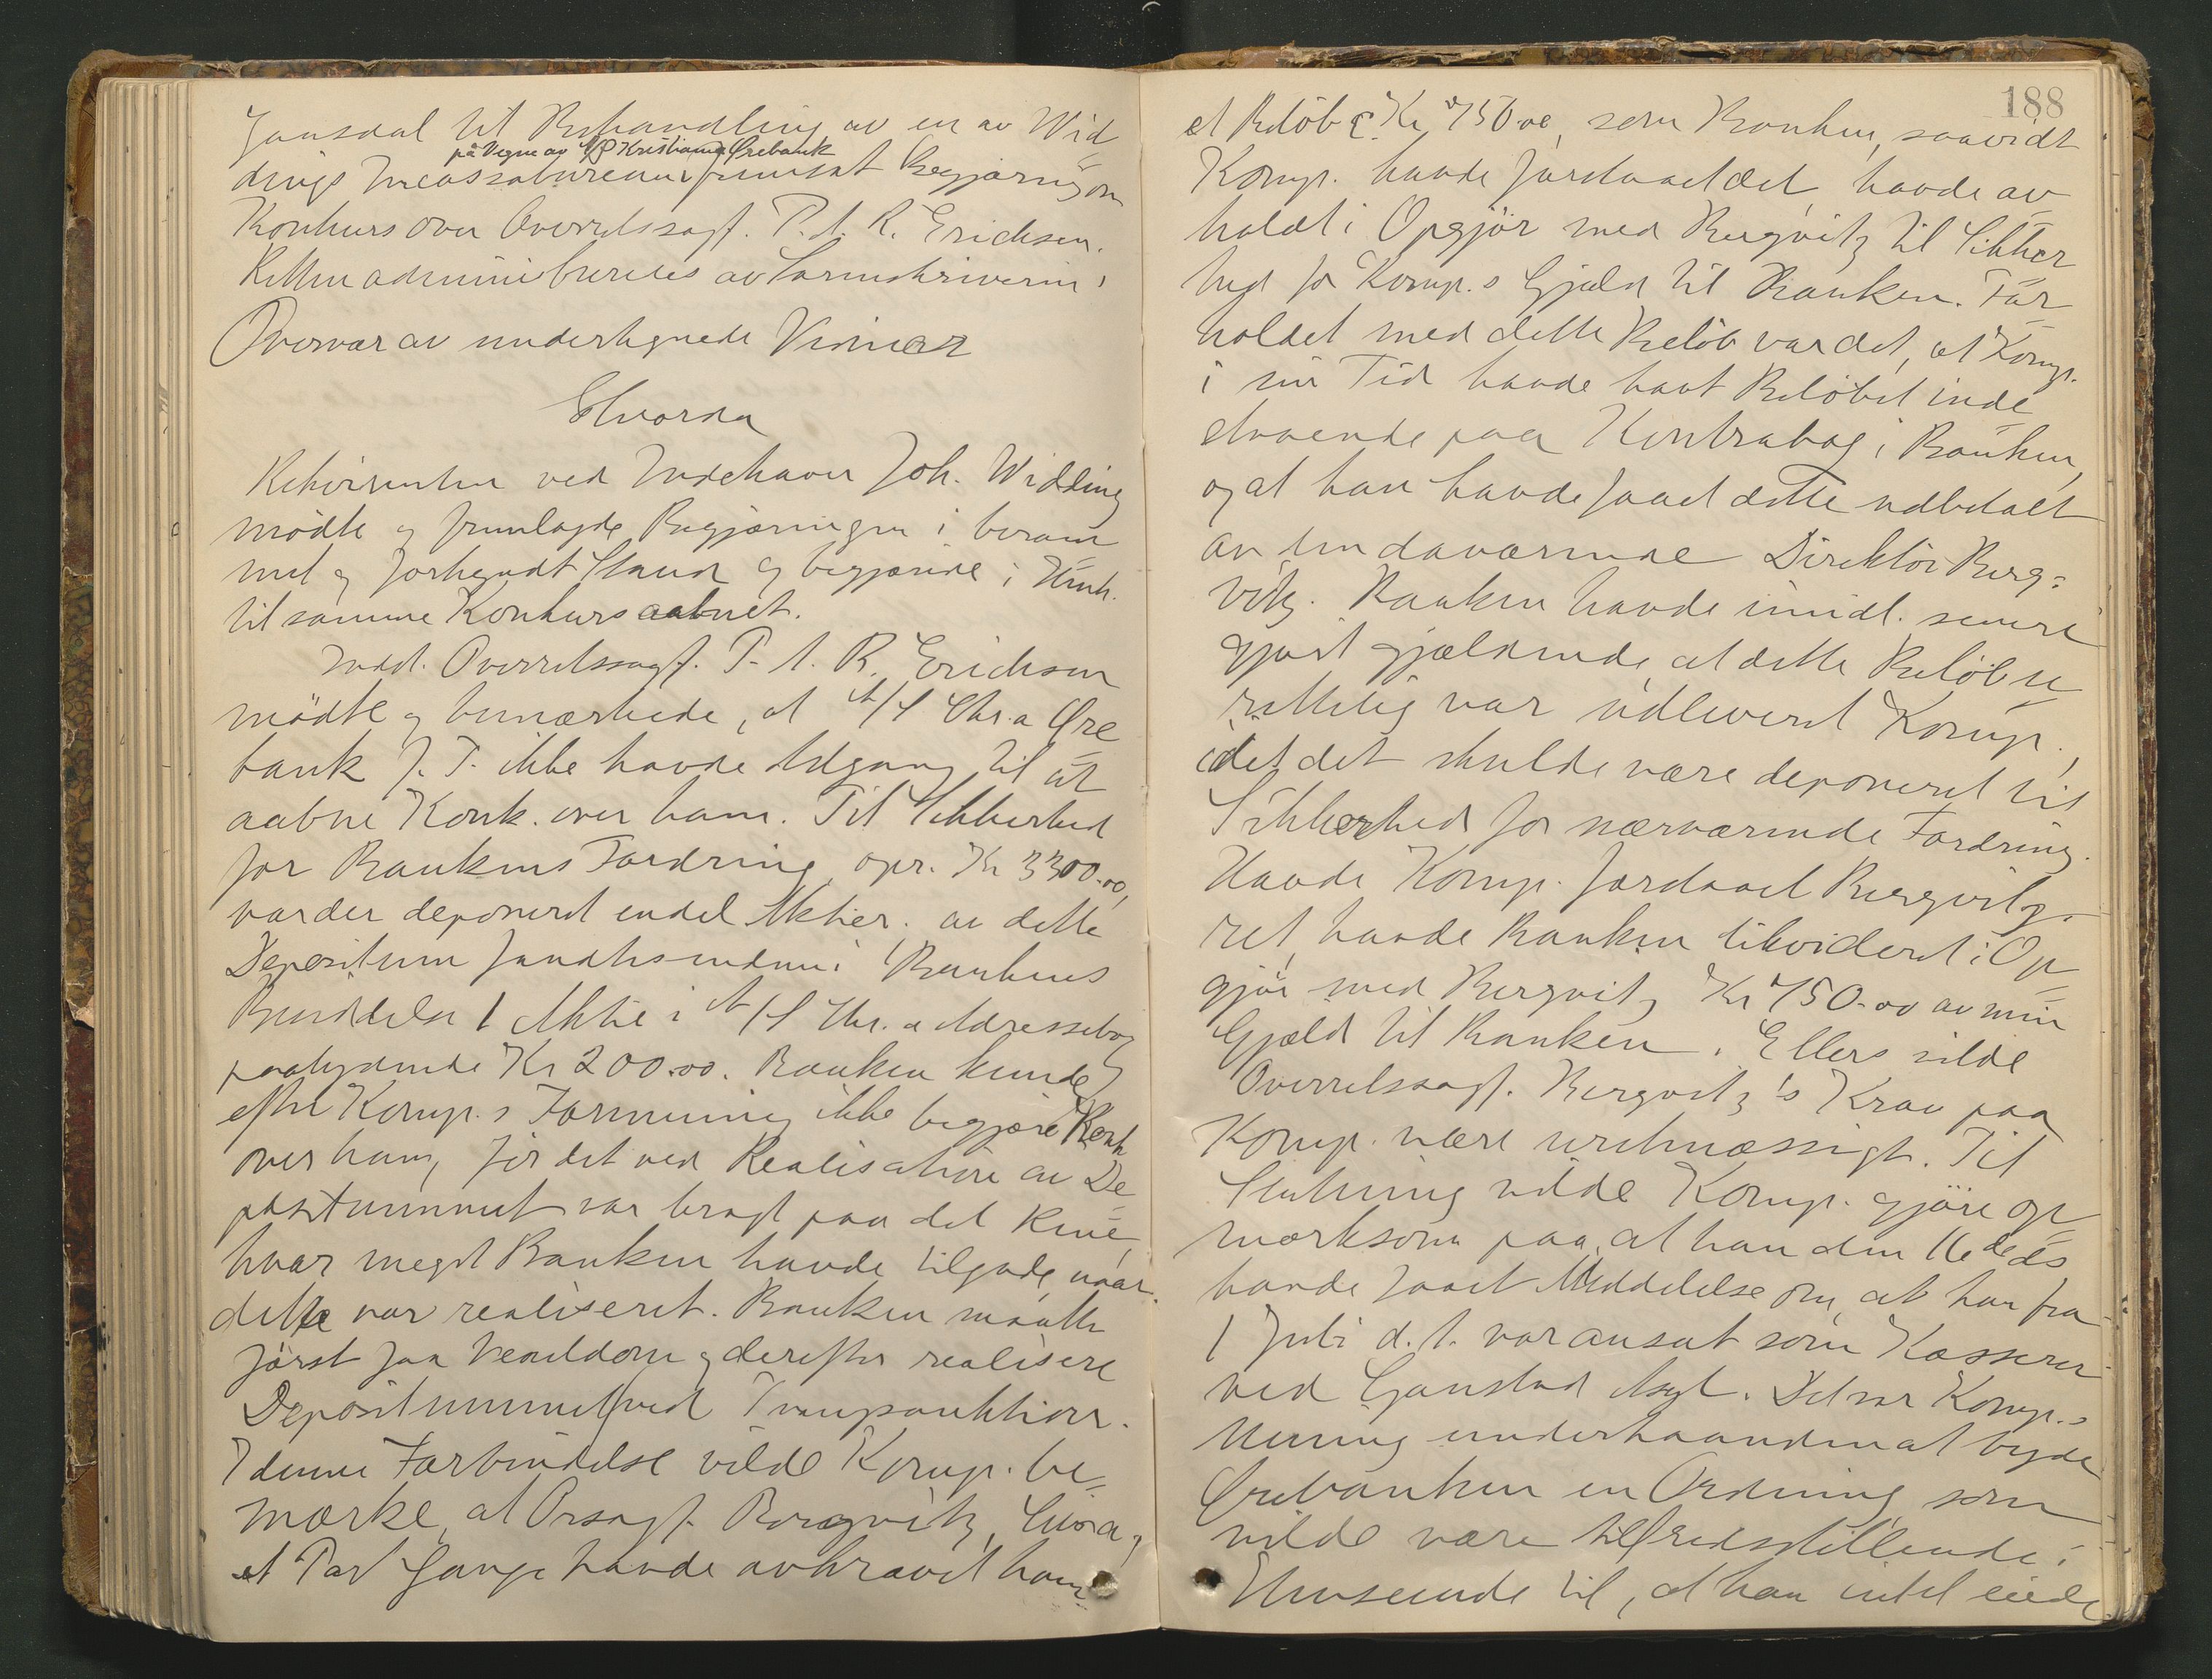 Jansdal til Behandling av en av Wid
på Vegne av A/S Kristiania Ørebank
dings Incassobureau fremsat Begjæring om
Konkurs over Overretssagf. P. A. R. Erichsen.
Retten administreredes av Sorenskriveren i
Overvær av undertegnede Vidner
Hvorda
Rekvirenten ved Indehaver Joh. Widding
mødte og fremlagde Begjæringen i beram
met og forkyndt Stand og begjærede i Henh.
til samme Konkurs aabnet.
Indst. Overretssagf. P. A. R. Erichsen
mødte og bemærkede, at A/S Chr.a Øre
bank f. T. ikke havde Adgang til at
aabne Konk. over ham. Til Sikkerhed
for Bankens Fordring, opr. Kr 3300.00,
var der deponeret endel Aktier. av dette
Depositum fandtes endnu i Bankens
Besiddelse 1 Aktie i A/S Chr.a Adressebog
paalydende Kr 200.00. Banken kunde
efter Komp.s Formening ikke begjære Konk
over ham, før det ved Realisation av De
positummet var bragt paa det Rene,
hvor meget Banken havde tilgode, naar
dette var realiseret. Banken maatte
først faa Venddom og derefter realisere
Depositummet ved Tvangsauktion.
I denne Forbindelse vilde Komp. be
mærke, at Orsagf. Bergwitz, Chr.a,
et Par Gange havde avkrævet ham
188
et Beløb Kr 750.00, som Banken, saavidt
Komp. havde forstaaet det, havde av
holdt i Opgjør med Bergwitz til Sikker
hed for Komp.s Gjæld til Banken. For
holdet med dette Beløb var det, at Komp.
i sin Tid havde havt Beløbet inde
staaende paa Kontrabog i Banken,
og at han havde faaet dette udbetalt
av den daværende Direktør Berg=
witz. Banken havde imidl. senere
gjort gjældende, at dette Beløb u
rettelig var udleveret Komp.,
idet det skulde være deponeret til
Sikkerhed for nærværende Fordring.
Havde Komp. forstaaet Bergwitz
ret, havde Banken likvideret i Op
gjør med Bergwitz Kr 750.00 av min
Gjæld til Banken. Ellers vilde
Overretssagf. Bergwitz's Krav paa
Komp. være uretmæssigt. Til
Slutning vilde Komp. gjøre op
merksom paa, at han den 11te ds
havde faaet Meddelelse om, at han fra
1 Juli d. A. var ansat som Kasserer
ved Gaustad Asyl. Det var Komp.s
Mening underhaanden at byde
Ørebanken en Ordning, som
vilde være tilfredsstillende i
Henseende til, at han intet eiede